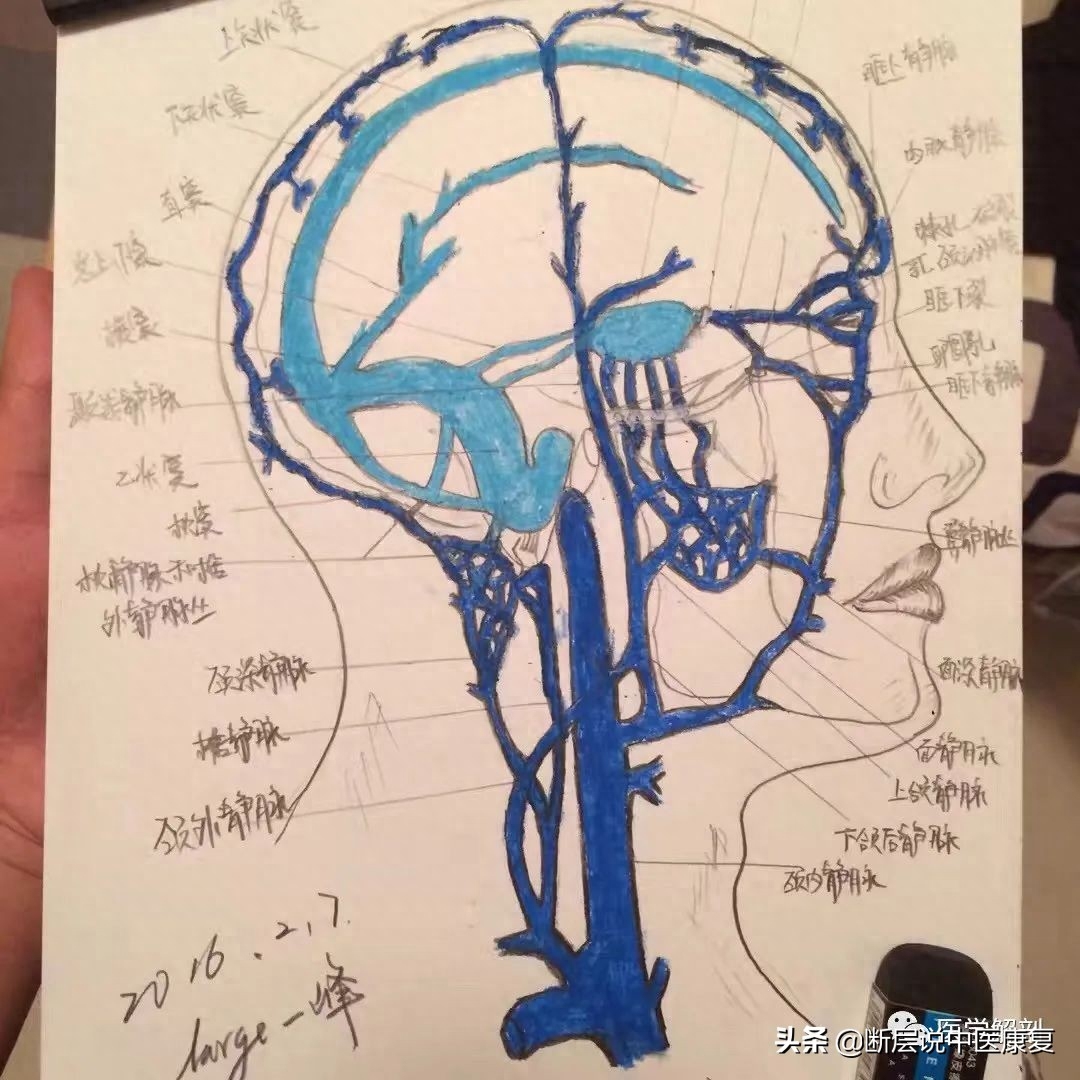 上矢状窦
下矢状窦
直窦
岩上、下窦
横窦
颞浅静脉
乙状窦
枕窦
枕静脉和椎
外静脉丛
颈深静脉
椎静脉
颈外静脉
眶上静脉
内眦静脉
眶下裂
眶下静脉
翼静脉丛
面深静脉
面静脉
上颌静脉
下颌后静脉
颈内静脉
2016.2.7.
large一峰
医学解剖
头条 @断层说中医康复